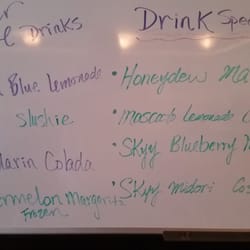 Drinks
Blue Lemonade
Slushie
Marin Colada
Frozen
Drink Spe
• Honeydew Ma
• Moscato Lemonade
• Skyy Blueberry
• Skyy Midori Cos